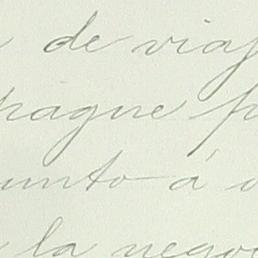 de viaj
pague p
unto á
la nego